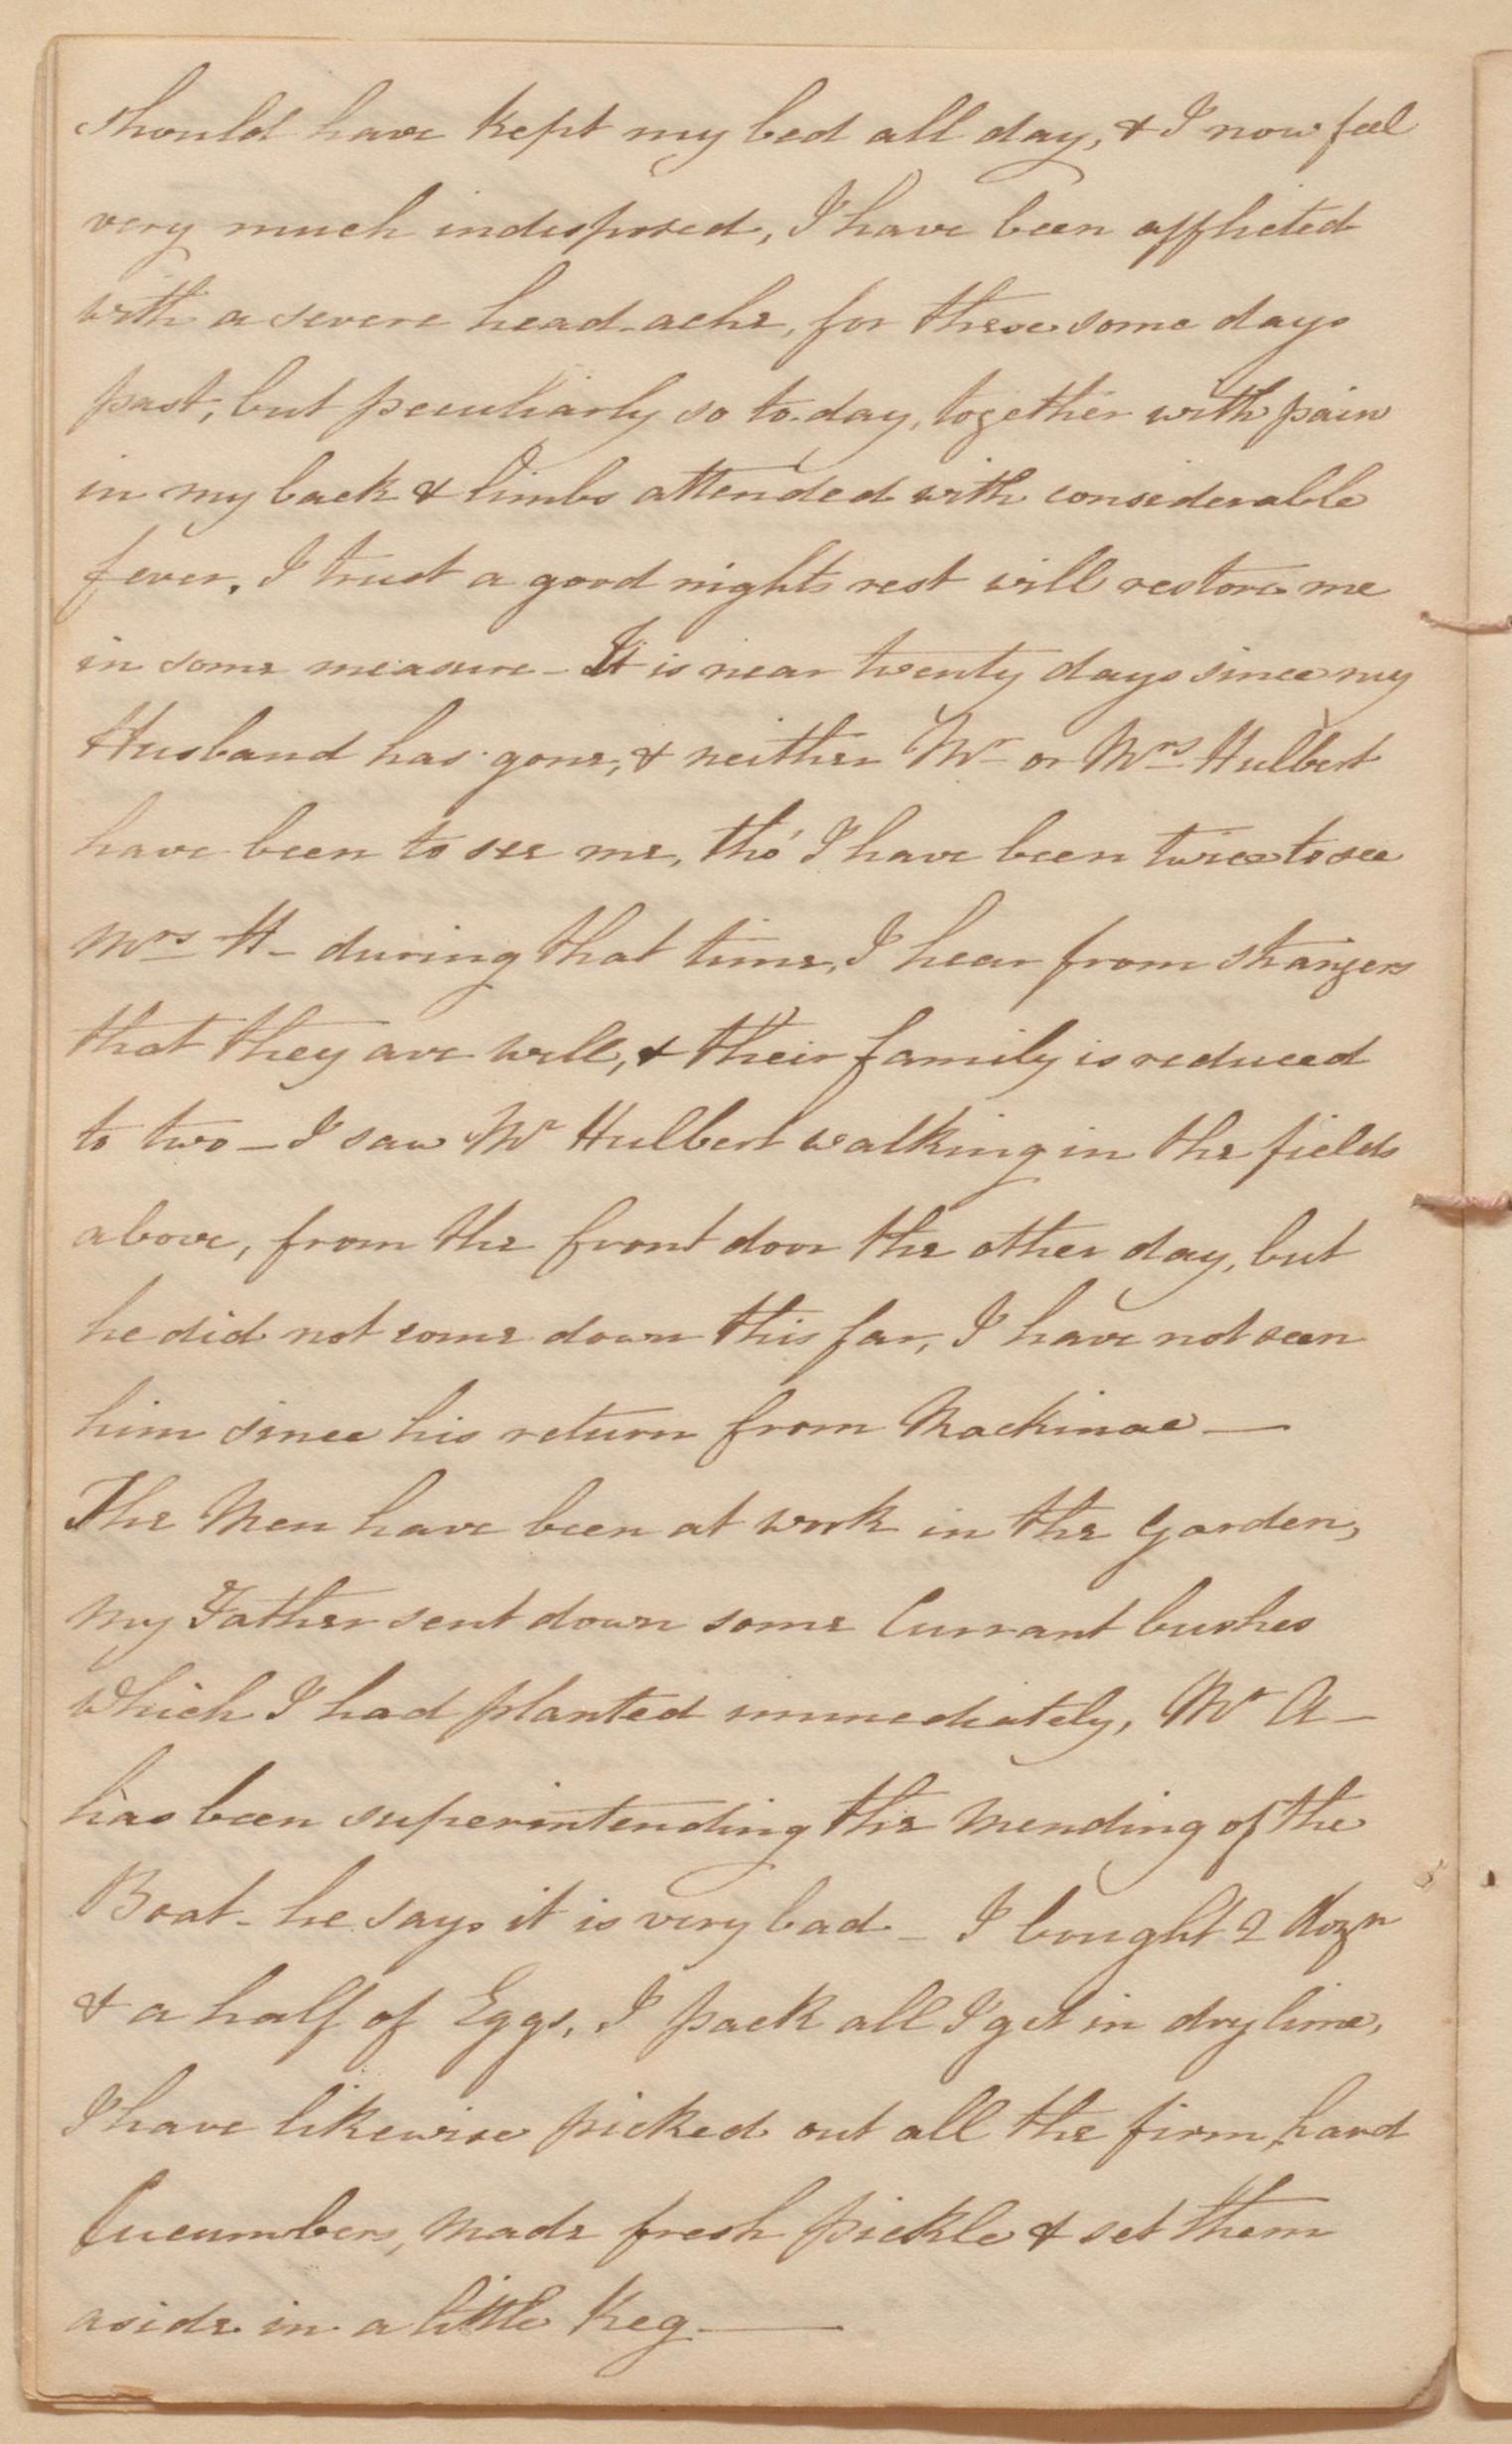 should have kept my bed all day, & I now feel
very much indisposed, I have been afflicted
with a severe head-ache, for these some days
past, but peculiarly so to-day, together with pain
in my back & limbs attended with considerable
fever. I trust a good nights rest will restore me
in some measure - It is near twenty days since my
Husband has gone, & neither Mr or Mrs Hulbert
have been to see me, tho' I have been twice to see
Mrs H- during that time, I hear from strangers
that they are well, & their family is reduced
to two - I saw Mr Hulbert walking in the fields
above, from the front door the other day, but
he did not come down this far, I have not seen
him since his return from Mackinac —
The Men have been at work in the Garden,
my Father sent down some Currant bushes
which I had planted immediately, Mr A-
has been superintending the mending of the
Boat - he says it is very bad - I bought 2 dozn
& a half of Eggs, I pack all I get in dry lime,
I have likewise picked out all the firm, hard
Cucumbers, made fresh pickle & set them
aside in a little Keg —